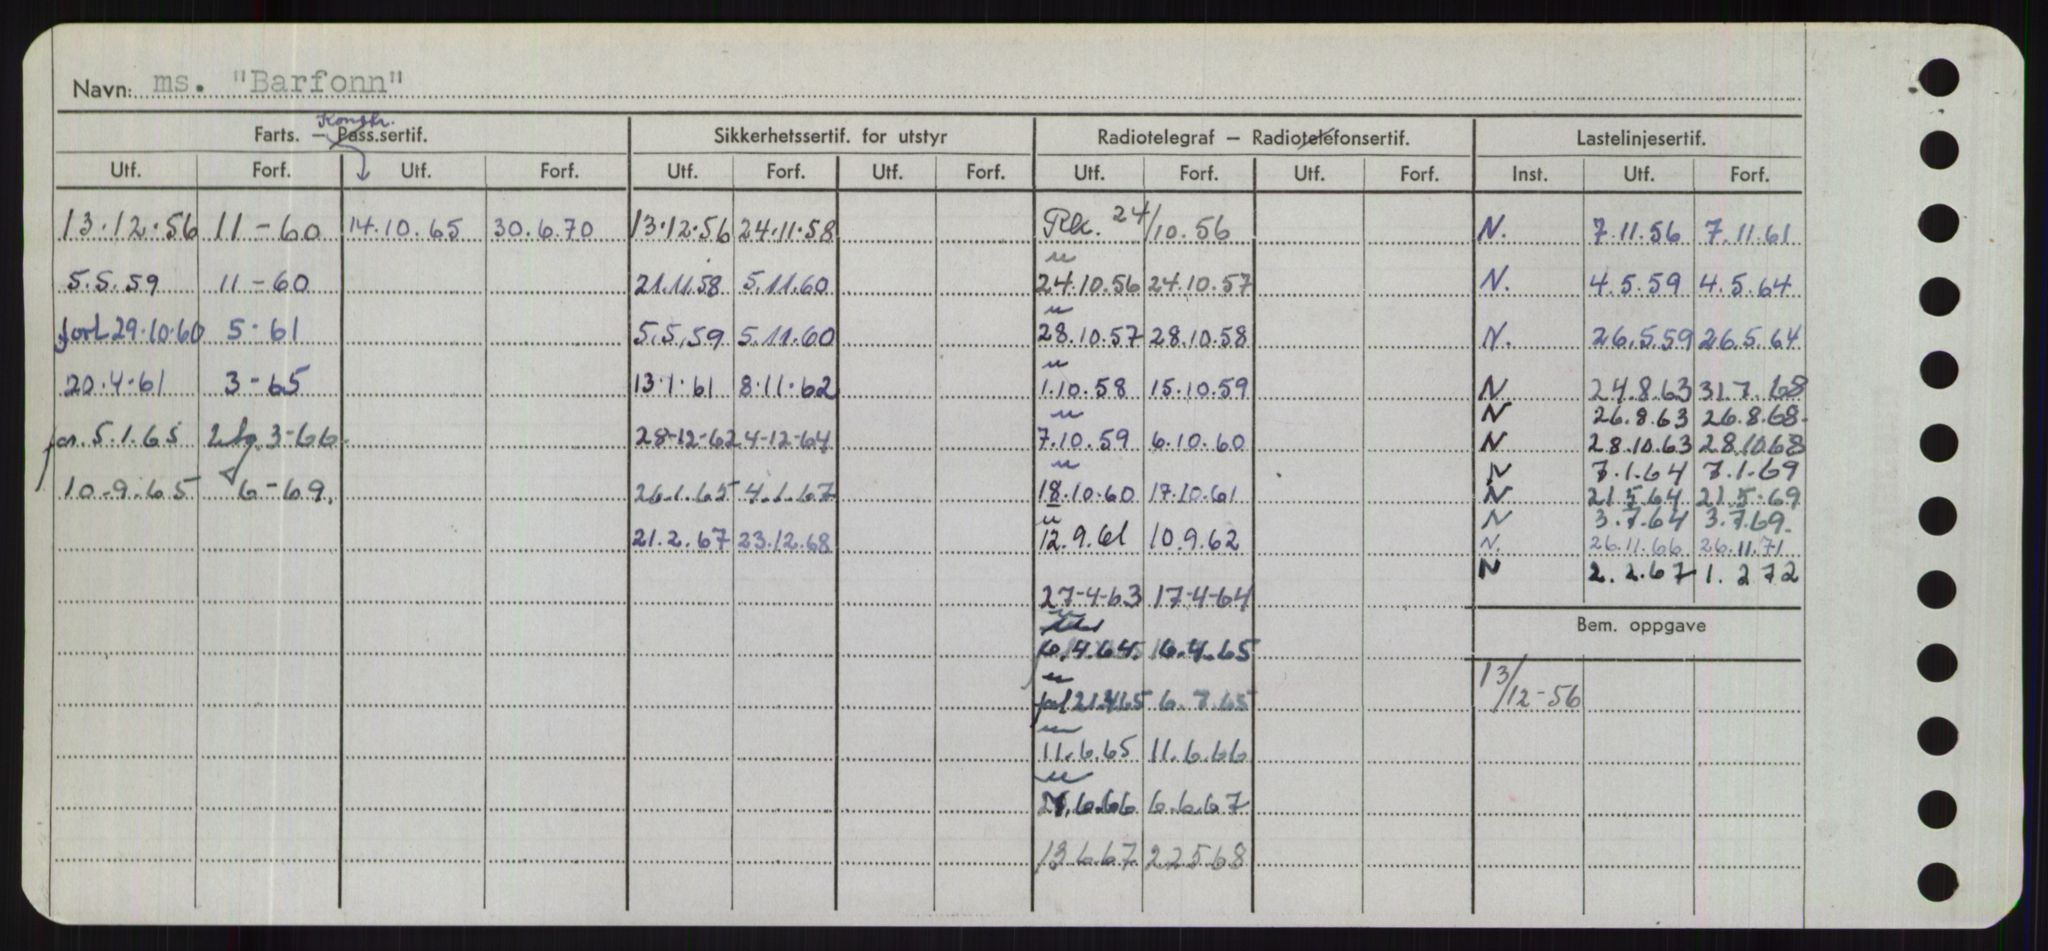 Navn: ms. "Barfonn"
Farts. — Konstr. Pass.sertif. Sikkerhetssertif. for utstyr Radiotelegraf — Radiotelefonsertif. Lastelinjesertif.
Utf. Forf. Utf. Forf. Utf. Forf. Utf. Forf. Utf. Forf. Utf. Forf. Inst. Utf. Forf.
13.12.56 11-60 14.10.65 30.6.70 13.12.56 24.11.58 24/10.56 N. 7.11.56 7.11.61
5.5.59 11-60 21.11.58 5.11.60 24.10.56 24.10.57 N. 4.5.59 4.5.64
forl 29.10.60 5-61 5.5.59 5.11.60 28.10.57 28.10.58 N. 26.5.59 26.5.64
20.4.61 3-65 13.1.61 8.11.62 1.10.58 15.10.59 N 24.8.63 31.7.68
N 26.8.63 26.8.68
5.1.65 3-66 28-12-62 4-12-64 7.10.59 6.10.60 N 28.10.63 28.10.68
N 7.1.64 7.1.69
10.9.65 6-69. 26.1.65 4.1.67 18.10.60 17.10.61 N 21.5.64 21.5.69
N 3.7.64 3.7.69
21.2.67 23.12.68 12.9.61 10.9.62 N. 26.11.66 26.11.71
N 2.2.67 1.2 72
27-4-63 17-4-64
Bem. oppgave
6.4.64. 16.4.65
13/12-56
21.4.65 6.7.65
11.6.65 11.6.66
6.66 6.6.67
13.6.67 22568